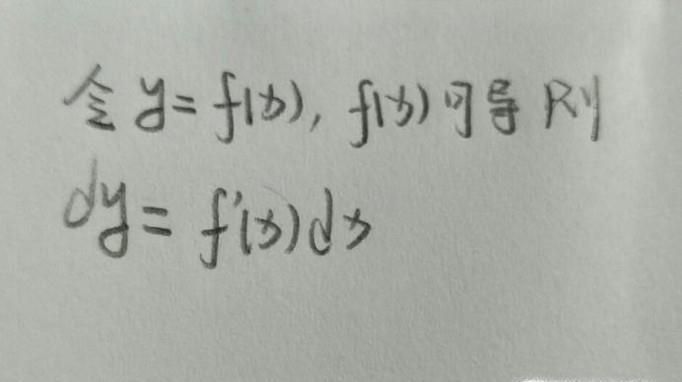 令 y = f(x), f(x) 可导 则
dy = f'(x)dx